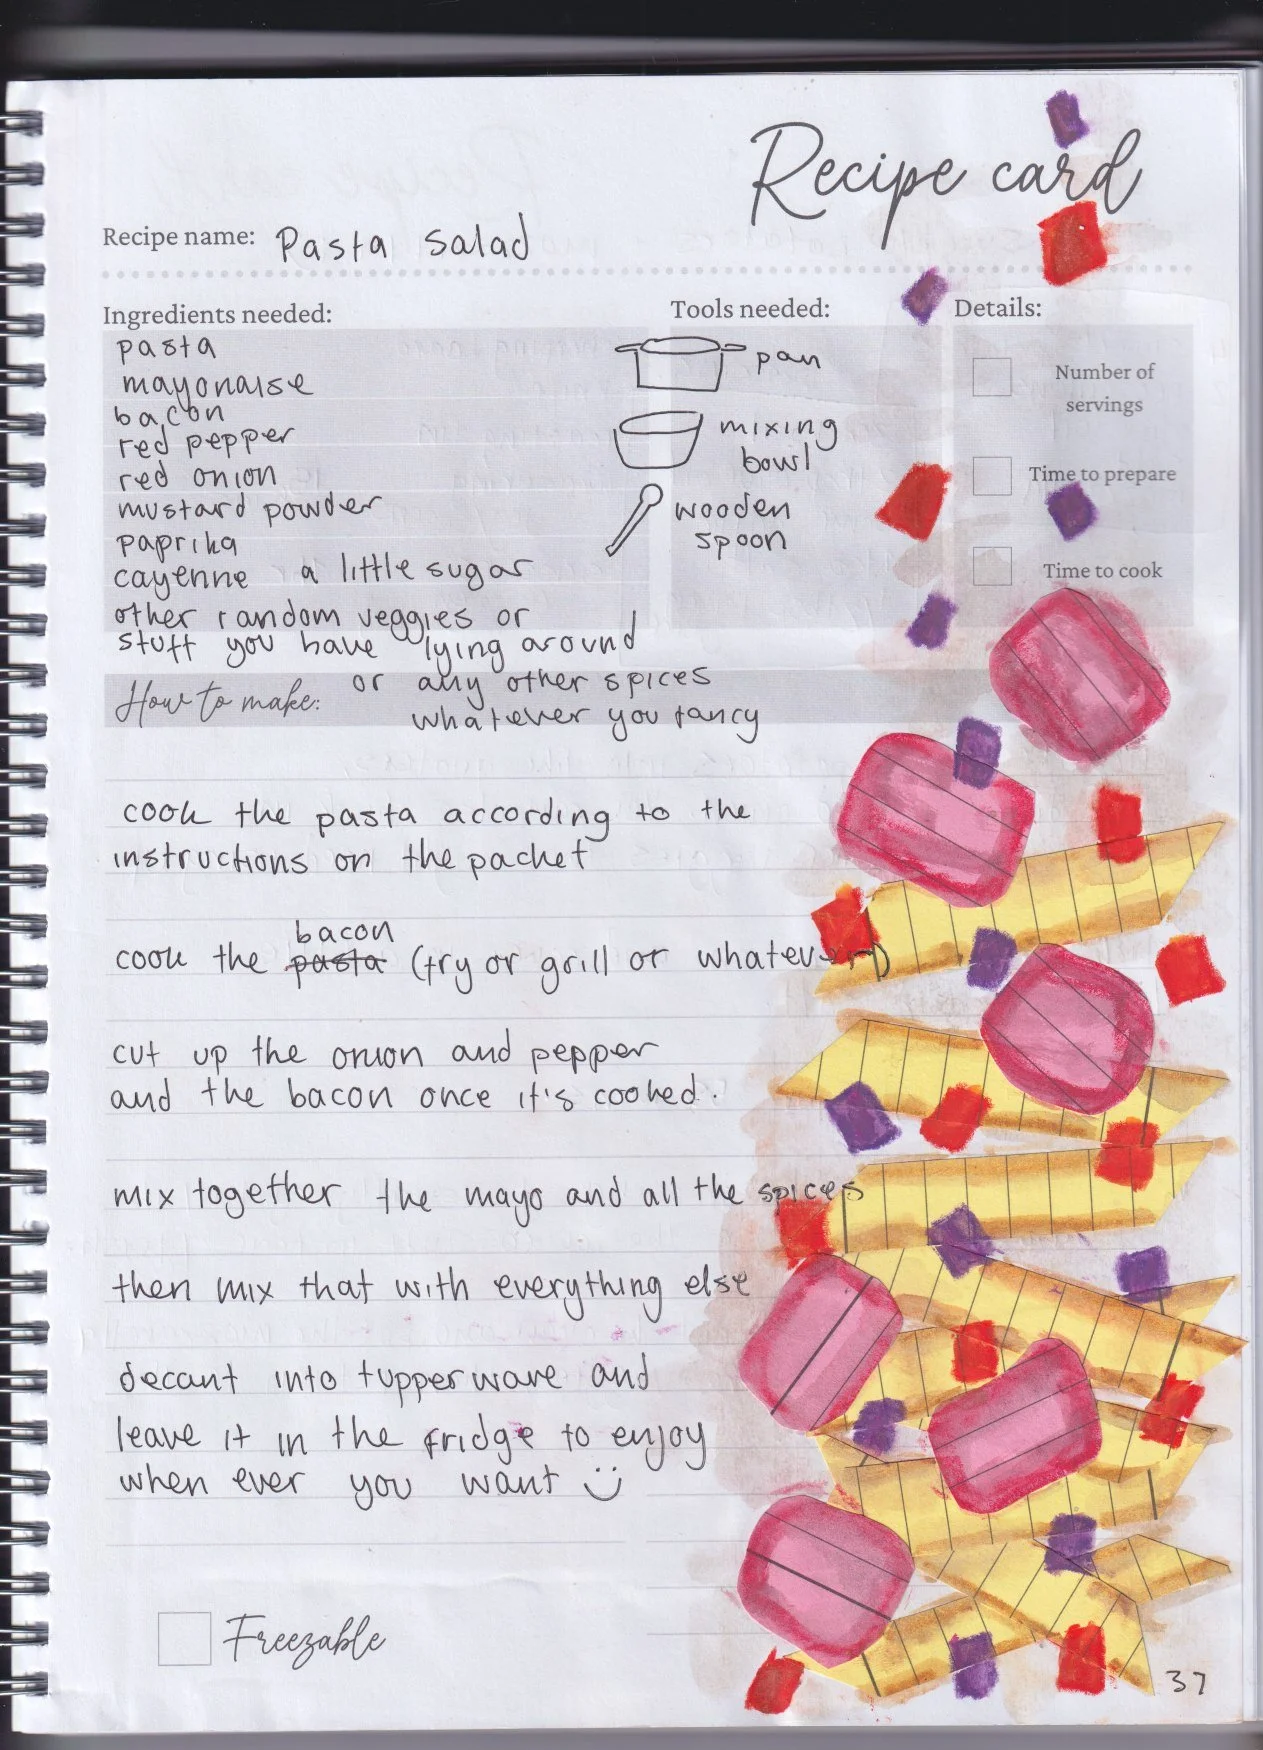 Recipe card
Recipe name: Pasta salad
Ingredients needed:
pasta
mayonaise
bacon
red pepper
red onion
mustard powder
paprika
cayenne a little sugar
other random veggies or
stuff you have lying around
or any other spices
whatever you fancy
Tools needed:
pan
mixing
bowl
wooden
spoon
Details:
Number of
servings
Time to prepare
Time to cook
How to make:
cook the pasta according to the
instructions on the packet
bacon
cook the pasta (fry or grill or whatever)
cut up the onion and pepper
and the bacon once it's cooked.
mix together the mayo and all the spices
then mix that with everything else
decant into tupperware and
leave it in the fridge to enjoy
when ever you want
Freezable
37